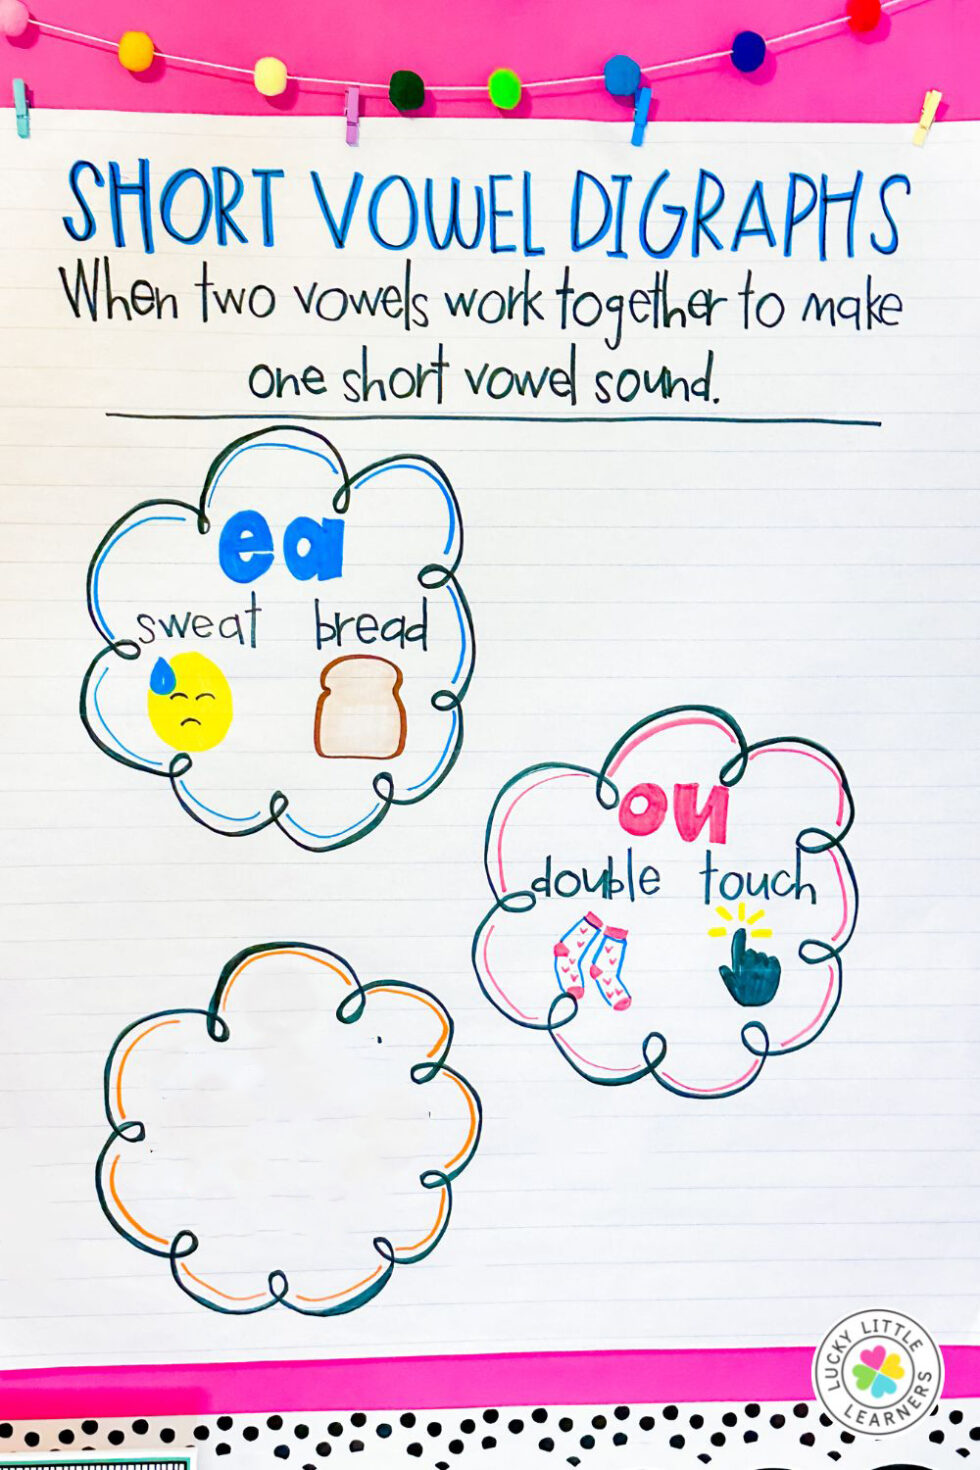 SHORT VOWEL DIGRAPHS
When two vowels work together to make
one short vowel sound.
ea
sweat bread
ou
double touch
LUCKY LITTLE LEARNERS